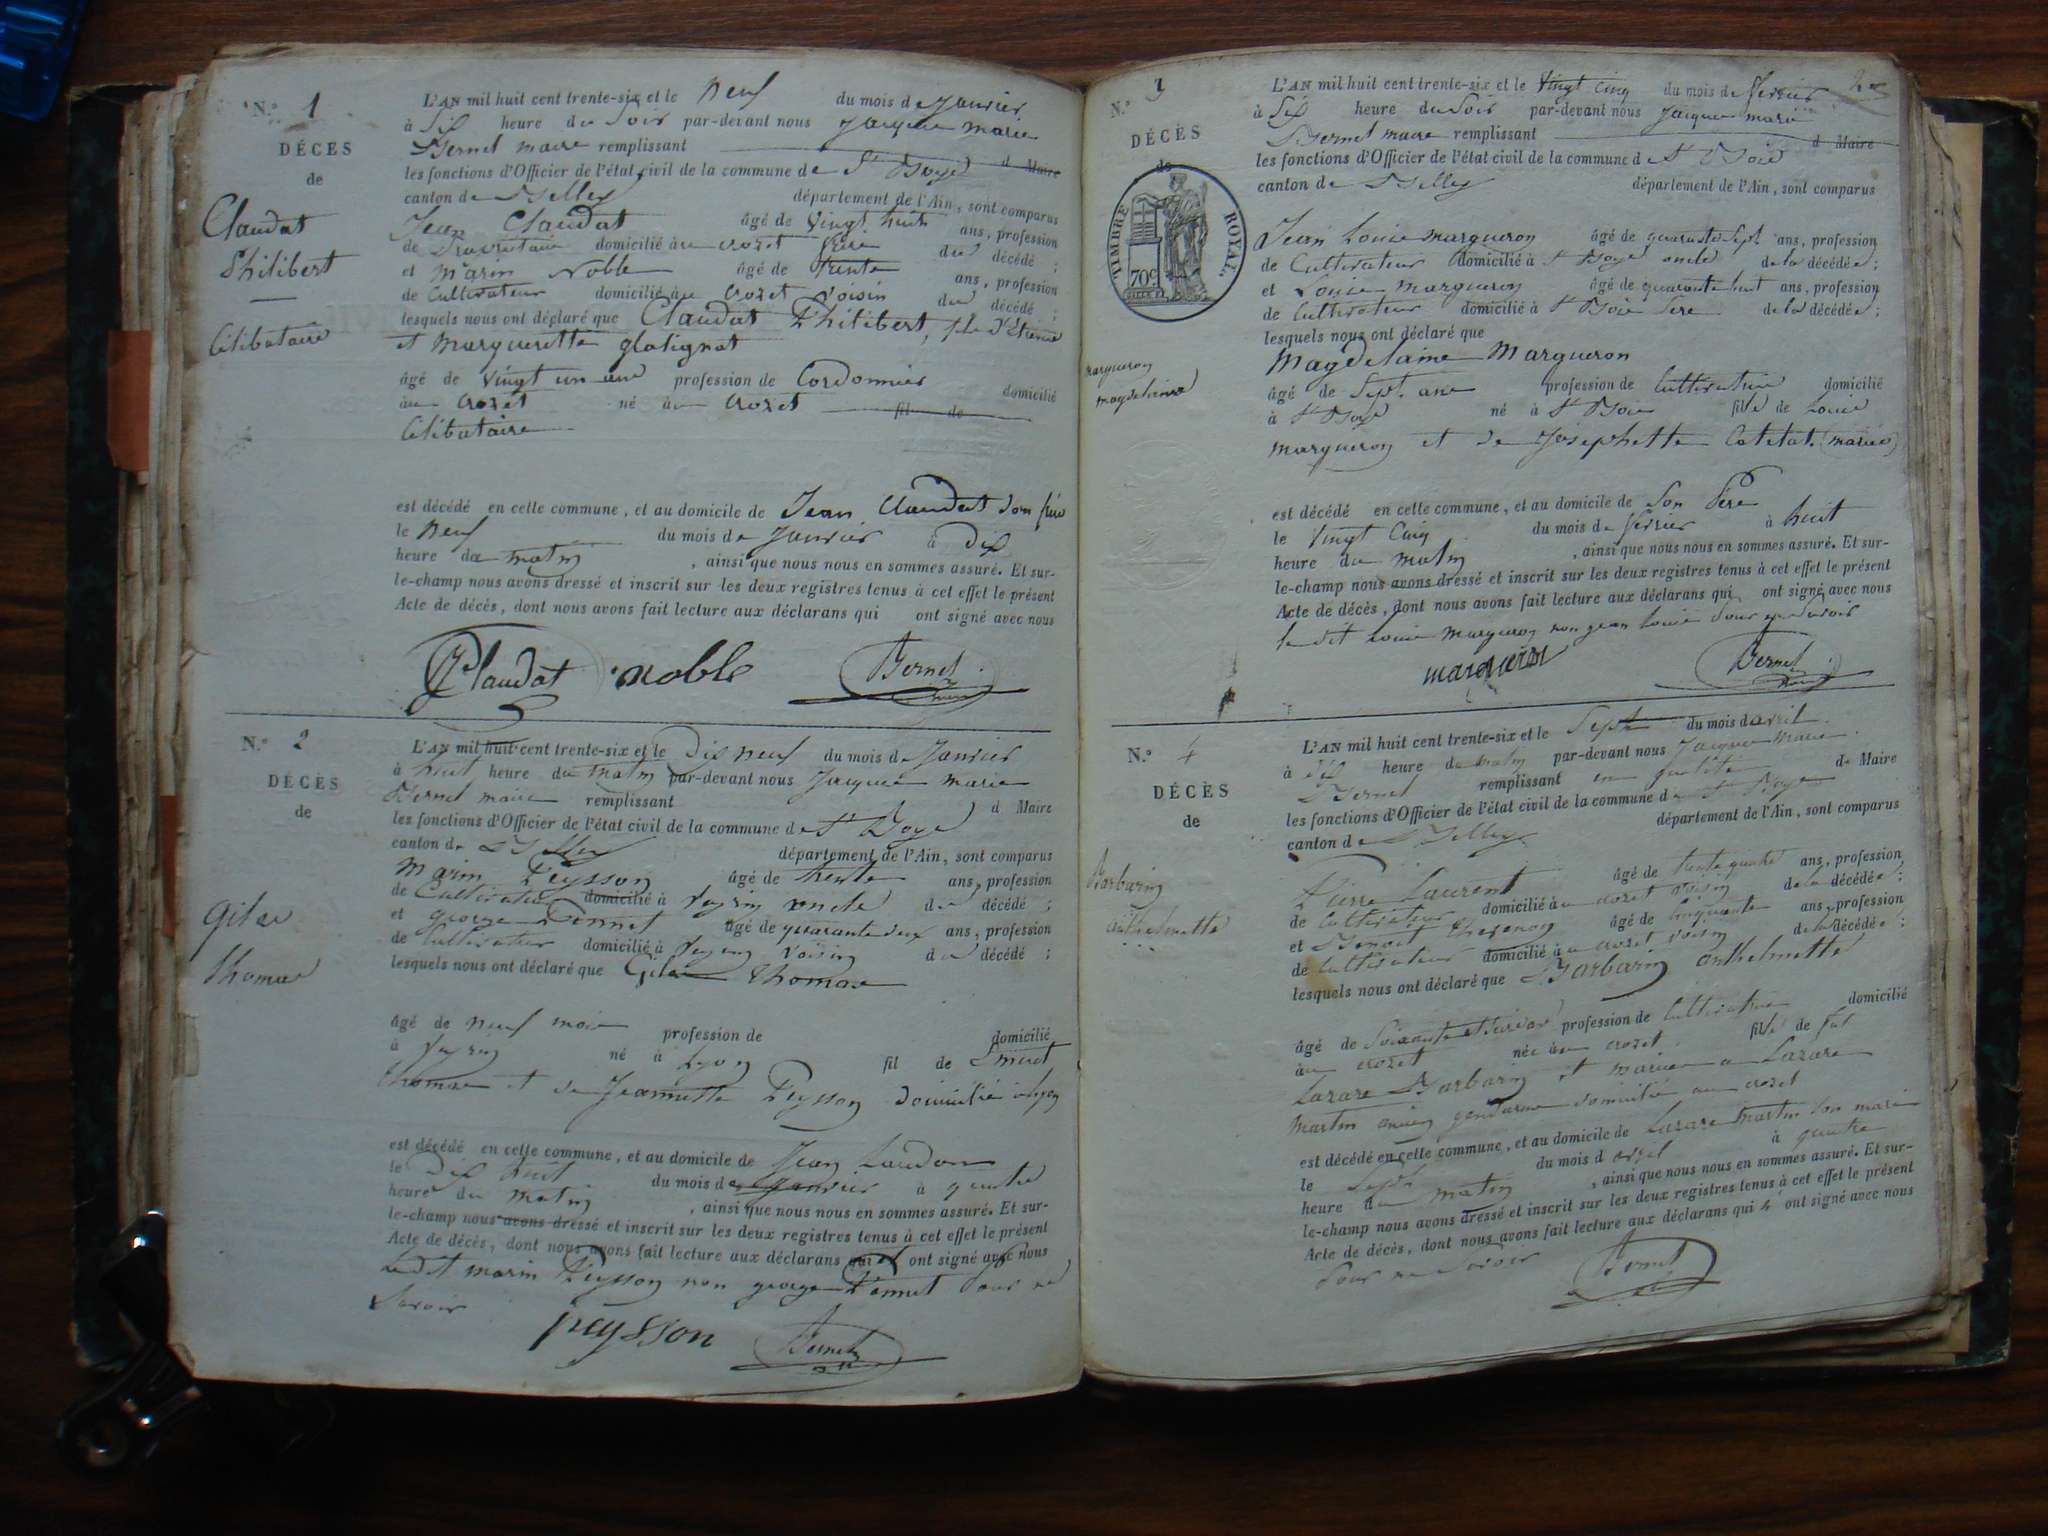 N.º 1
DÉCES
de
Claudat
Philibert
Célibataire
L'AN mil huit cent trente-six et le neuf du mois de Janvier
à Six heure du Soir par-devant nous Jacque marie
Bernel maire remplissant d Maire
les fonctions d'Officier de l'état civil de la commune de St Boys
canton de Belley département de l'Ain, sont comparus
Jean Claudat âgé de vingt huit ans, profession
de domicilié au crozet frère du décédé ;
et Marin Noble âgé de trente ans, profession
de Cultivateur domicilié au Crozet voisin du décédé ;
lesquels nous ont déclaré que Claudat Philibert, fils d'Etienne
et Margueritte glatignat
âgé de vingt un ans profession de Cordonnier domicilié
au Crozet né au Crozet fil de
Célibataire
est décédé en cette commune, et au domicile de Jean Claudat son frère
le neuf du mois de Janvier à dix
heure du matin , ainsi que nous nous en sommes assuré. Et sur-
le-champ nous avons dressé et inscrit sur les deux registres tenus à cet effet le présent
Acte de décès, dont nous avons fait lecture aux déclarans qui ont signé avec nous
Claudat noble Bernel
N.º 2
DÉCÈS
de
Gilar
thomas
L'AN mil huit cent trente-six et le dix neuf du mois de Janvier
à huit heure du matin par-devant nous Jacque marie
Bernel maire remplissant d Maire
les fonctions d'Officier de l'état civil de la commune de St Boys
canton de Belley département de l'Ain, sont comparus
Marin Peysson âgé de trente ans, profession
de Cultivateur domicilié à Peyrin oncle du décédé ;
et george Pennet âgé de quarante deux ans, profession
de Cultivateur domicilié à voisin du décédé ;
lesquels nous ont déclaré que Gilar thomas
âgé de neuf mois profession de domicilié
à né à Lyon fil de
thomas et de Jeannette Peysson domicilié à lyon
est décédé en cette commune, et au domicile de Jean
le dix huit du mois de Janvier à quatre
heure du matin , ainsi que nous nous en sommes assuré. Et sur-
le-champ nous avons dressé et inscrit sur les deux registres tenus à cet effet le présent
Acte de décès, dont nous avons fait lecture aux déclarans qui ont signé avec nous
Ledit marin Peysson non george Pennet pour ne
Savoir
peysson Bernel
N.º 3
DÉCÈS
de
TIMBRE ROYAL
70c
margueron
magdelaine
L'AN mil huit cent trente-six et le vingt cinq du mois de fevrier
à Six heure du Soir par-devant nous Jacque marie
Bernel maire remplissant d Maire
les fonctions d'Officier de l'état civil de la commune d St Bois
canton de Belley département de l'Ain, sont comparus
Jean Louis margueron âgé de quarante sept ans, profession
de Cultivateur domicilié à St Boys oncle de la décédée ;
et Louis margueron âgé de quarante huit ans, profession
de Cultivateur domicilié à St Bois Père de la décédée ;
lesquels nous ont déclaré que
Magdelaine Margueron
âgé de Sept ans profession de Cultivatrice domicilié
à St Boys né à St Bois fille de Louis
margueron et de Josephette Catelat (mariés)
est décédé en cette commune, et au domicile de Son Père
le vingt cinq du mois de fevrier à huit
heure du matin , ainsi que nous nous en sommes assuré. Et sur-
le-champ nous avons dressé et inscrit sur les deux registres tenus à cet effet le présent
Acte de décès, dont nous avons fait lecture aux déclarans qui ont signé avec nous
le dit Louis margueron non jean louis pour ne Savoir
margueron Bernel
N.º 4
DÉCÈS
de
Barbarin
anthelmette
L'AN mil huit cent trente-six et le Sept du mois d avril
à dix heure du matin par-devant nous Jacque Marie
Bernel remplissant en qualité de Maire
les fonctions d'Officier de l'état civil de la commune d e St Boys
canton de Belley département de l'Ain, sont comparus
Pierre Laurent âgé de trente quatre ans, profession
de Cultivateur domicilié au crozet voisin de la décédée ;
et Benoit Thevenon âgé de Cinquante ans, profession
de Cultivateur domicilié au crozet voisin de la décédée ;
lesquels nous ont déclaré que Barbarin anthelmette
âgé de profession de Cultivatrice domicilié
au crozet née au crozet fille de fut
Lazare Barbarin et mariée a Lazare
Martin ancien gendarme domicilié au crozet
est décédé en cette commune, et au domicile de Lazare Martin son mari
le Sept du mois d avril à quatre
heure du matin , ainsi que nous nous en sommes assuré. Et sur-
le-champ nous avons dressé et inscrit sur les deux registres tenus à cet effet le présent
Acte de décès, dont nous avons fait lecture aux déclarans qui n' ont signé avec nous
Pour ne Savoir Bernel